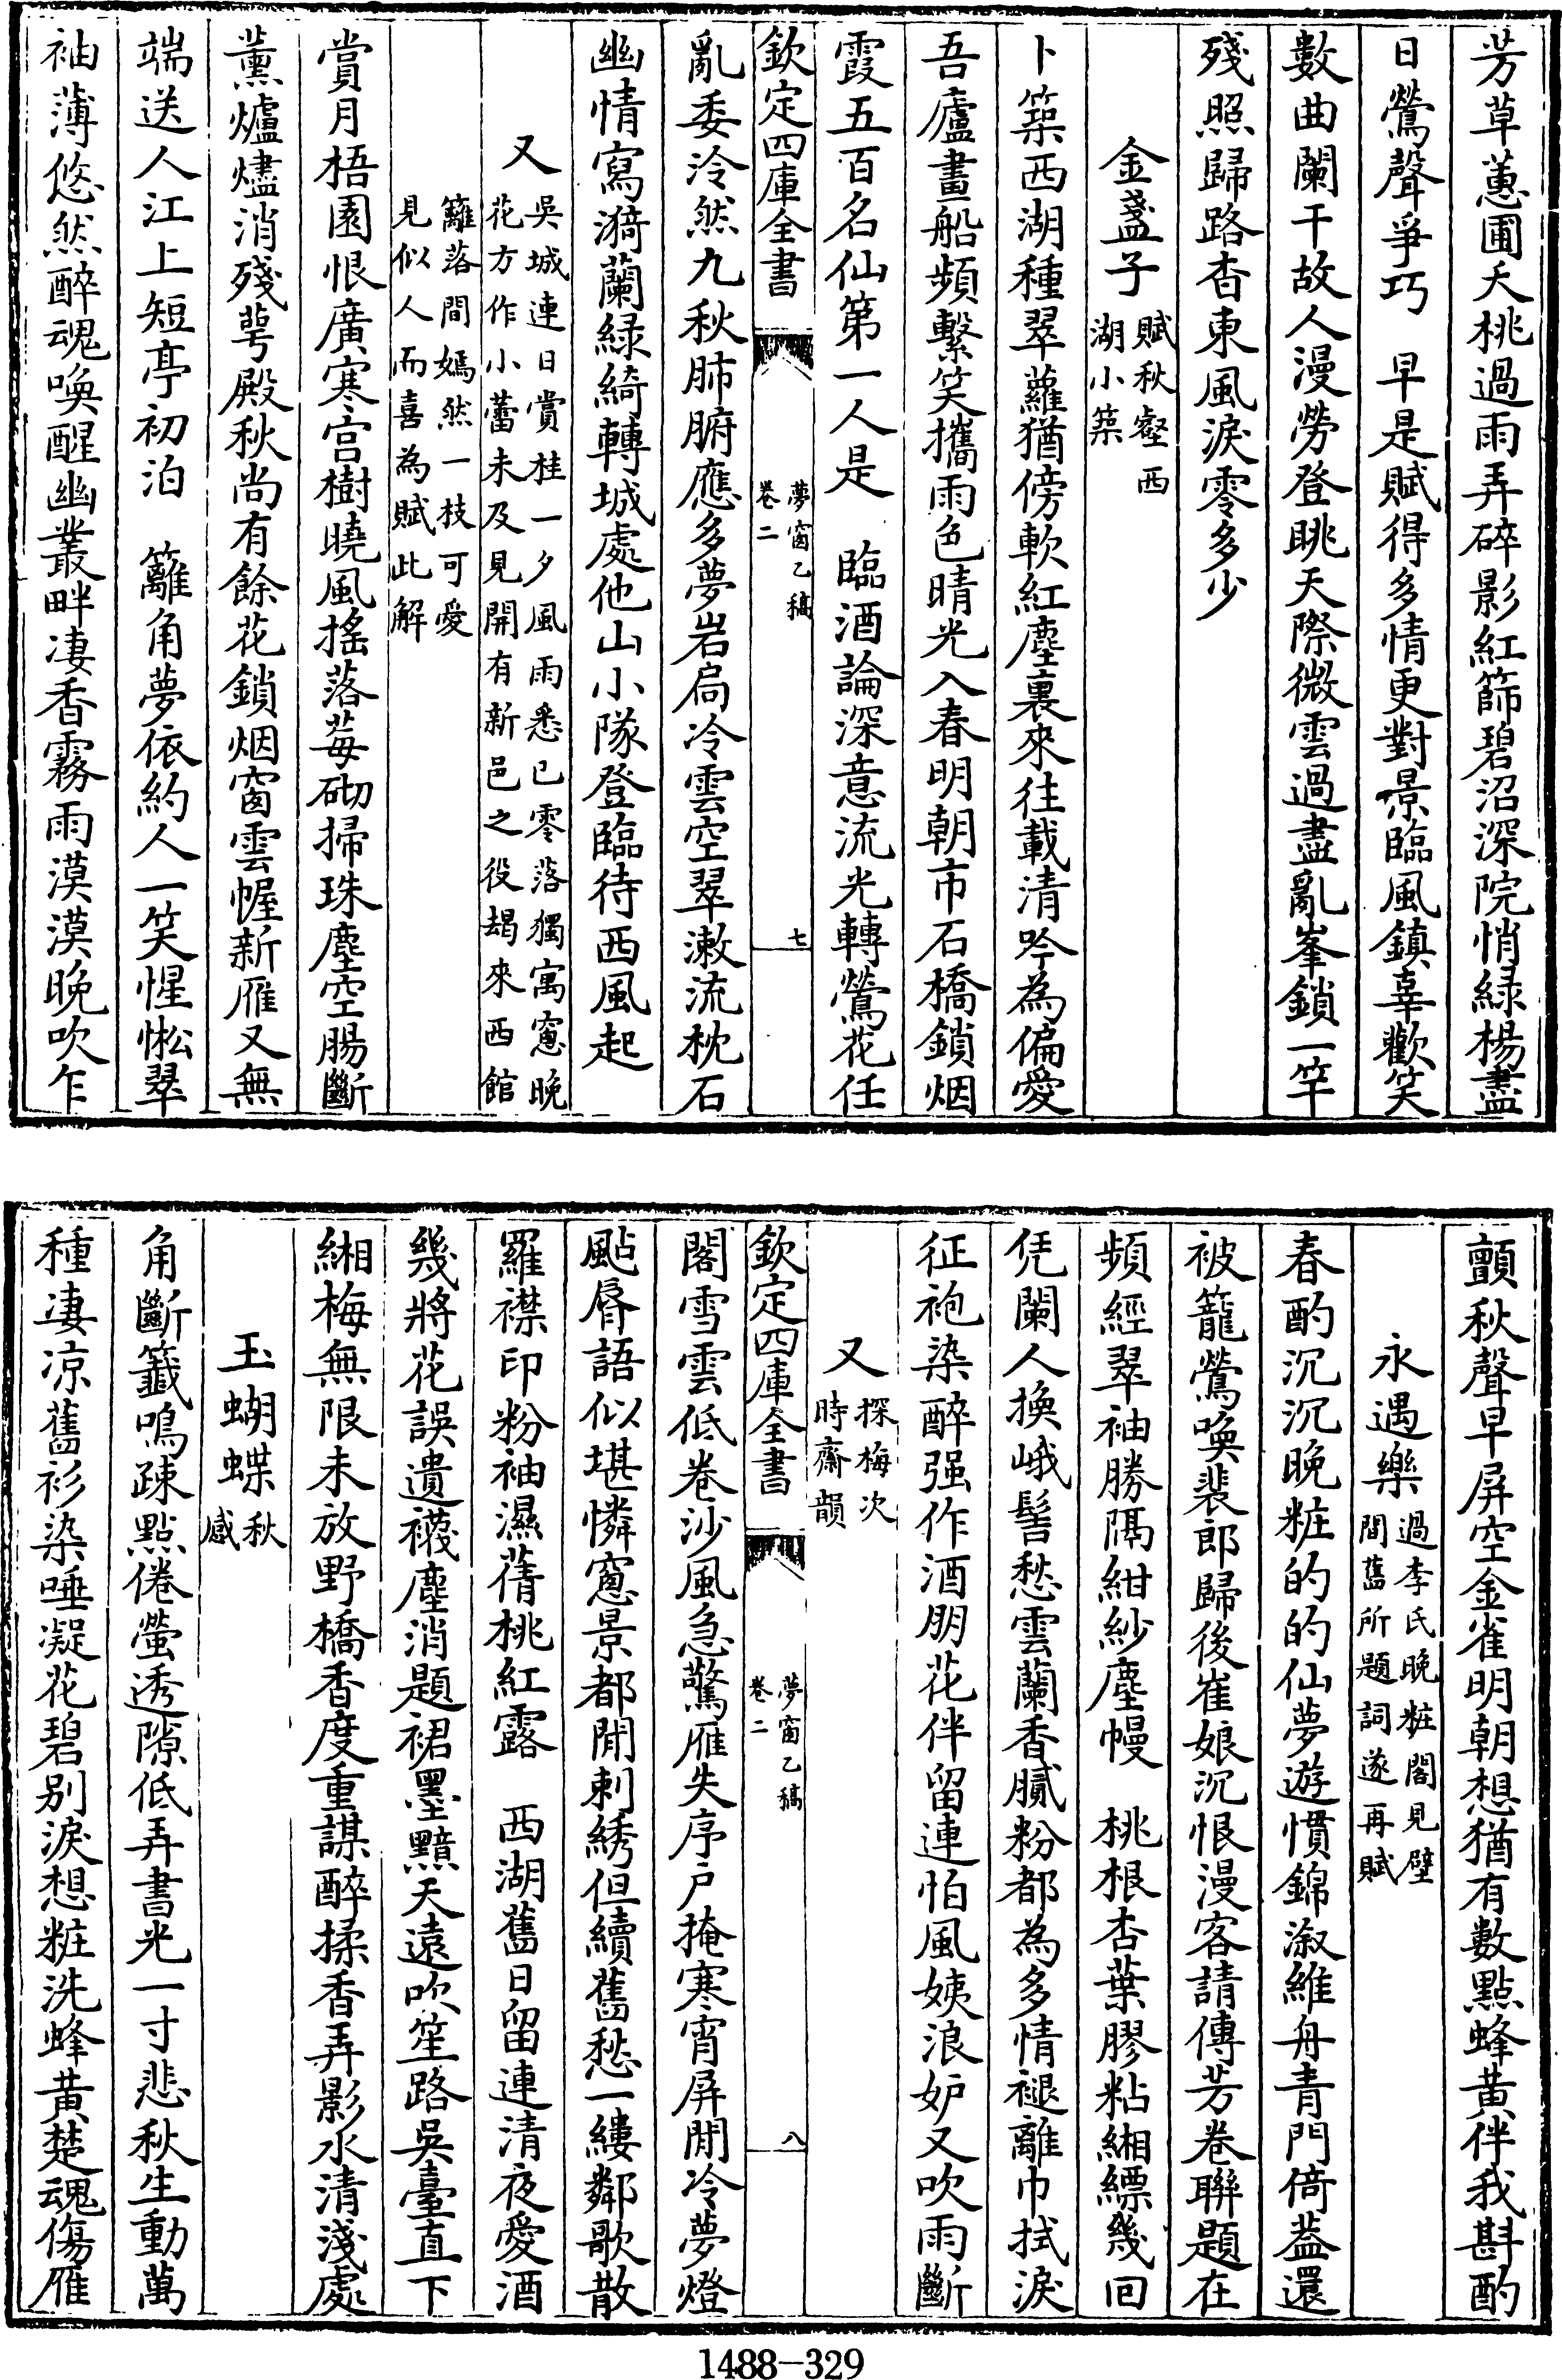 芳草蕙圃夭桃過雨弄碎影紅篩碧沼深院悄緑楊盡
日鶯聲爭巧　早是賦得多情更對景臨風鎮辜歡笑
數曲闌干故人漫勞登眺天際微雲過盡亂峯鎖一竿
殘照歸路杳東風淚零多少
金盞子賦秋壑西
湖小築
卜築西湖種翠蘿猶傍軟紅塵裏來往載清吟為偏愛
吾廬畫船頻繫笑攜雨色晴光入春明朝市石橋鎖烟
霞五百名仙第一人是　臨酒論深意流光轉鶯花任
欽定四庫全書
夢窗乙稿
卷二
七
亂委泠然九秋肺腑應多夢岩扃冷雲空翠漱流枕石
幽情寫漪蘭緑綺轉城處他山小隊登臨待西風起
又吳城連日賞桂一夕風雨悉已零落獨寓窻晚
花方作小蕾未及見開有新邑之役朅來西館
籬落間嫣然一枝可愛
見似人而喜為賦此解
賞月梧園恨廣寒宫樹曉風搖落莓砌掃珠塵空腸斷
薰爐燼消殘萼殿秋尚有餘花鎖烟窗雲幄新雁又無
端送人江上短亭初泊　籬角夢依約人一笑惺忪翠
袖薄悠然醉魂喚醒幽叢畔凄香霧雨漠漠晚吹乍
顫秋聲早屏空金雀明朝想猶有數點蜂黄伴我斟酌
永遇樂過李氏晚粧閣見壁
間舊所題詞遂再賦
春酌沉沉晚粧的的仙夢遊慣錦溆維舟青門倚蓋還
被籠鶯喚裴郎歸後崔娘沉恨漫客請傳芳卷聨題在
頻經翠袖勝隔紺紗塵幔　桃根杏葉膠粘緗縹幾回
凭闌人換峨髻愁雲蘭香膩粉都為多情褪離巾拭淚
征袍染醉强作酒朋花伴留連怕風姨浪妒又吹雨斷
又探梅次
時齋韻
欽定四庫全書
夢窗乙稿
卷二
八
閣雪雲低卷沙風急驚雁失序户掩寒宵屏閒冷夢燈
颭脣語似堪憐窻景都閒刺綉但續舊愁一縷鄰歌散
羅襟印粉袖濕蒨桃紅露　西湖舊日留連清夜愛酒
幾將花誤遺襪塵消題裙墨黯天遠吹笙路吳臺直下
緗梅無限未放野橋香度重謀醉揉香弄影水清淺處
玉蝴蝶秋
感
角斷籤鳴疎點倦螢透隙低弄書光一寸悲秋生動萬
種凄凉舊衫染唾凝花碧别淚想粧洗蜂黄楚魂傷雁
1488-329